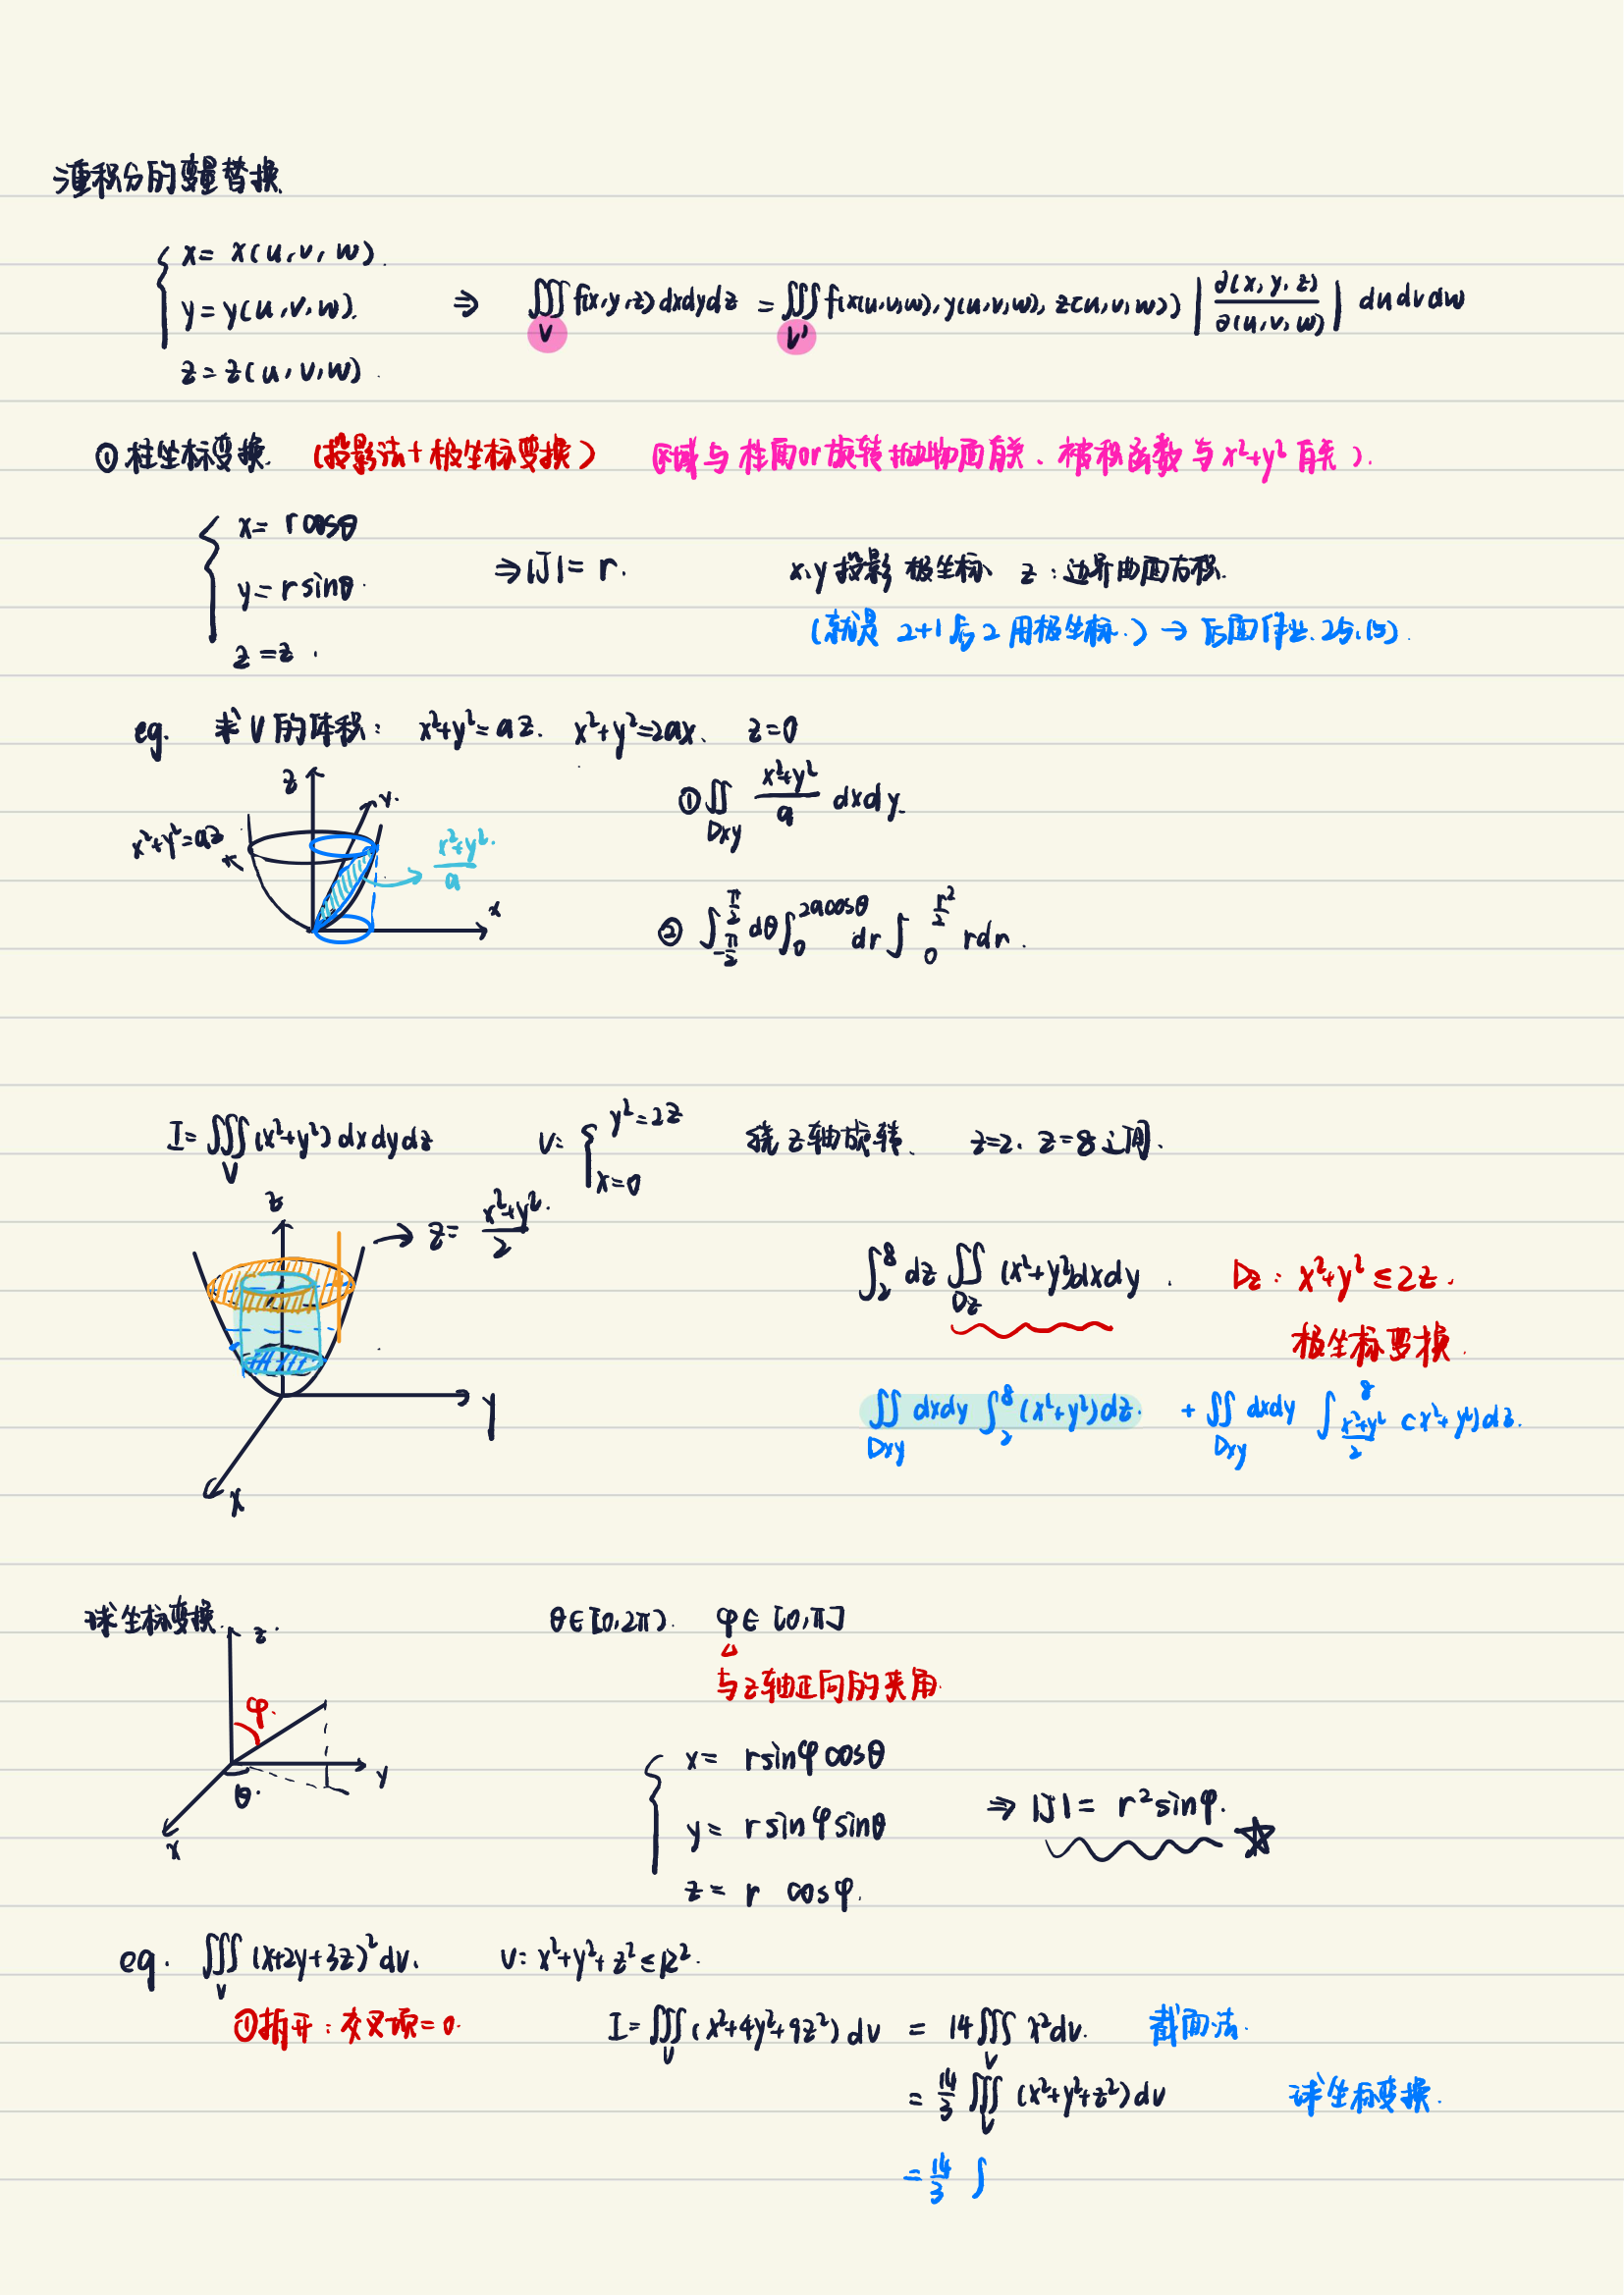 三重积分的变量替换
x = x(u,v,w)
y = y(u,v,w) ⇒ ∭_V f(x,y,z) dxdydz = ∭_V' f(x(u,v,w), y(u,v,w), z(u,v,w)) |∂(x,y,z)/∂(u,v,w)| dudvdw
z = z(u,v,w)
① 柱坐标变换 (投影法+极坐标变换) 区域与柱面or旋转抛物面有关、被积函数与x²+y²有关).
x = rcosθ
y = rsinθ ⇒ |J| = r. x,y投影 极坐标、 z:边界曲面方程.
z = z.
(就是 2+1 后2用极坐标.) →
eg. 求V的体积: x²+y²=az. x²+y²=2ax、 z=0
z y.
① ∬_Dxy (x²+y²)/a dxdy.
x²+y²=az
(x²+y²)/a
x
② ∫_{-π/2}^{π/2} dθ ∫_0^{2acosθ} dr ∫_0^{r²/2} rdr.
I = ∭_V (x²+y²) dxdydz V: { y²=2z x=0 绕z轴旋转、 z=2. z=8之间.
z → z = (x²+y²)/2
∫_2^8 dz ∬_Dz (x²+y²)dxdy. Dz: x²+y² ≤ 2z.
极坐标变换.
∬_Dxy dxdy ∫_2^8 (x²+y²)dz. + ∬_Dxy dxdy ∫_{(x²+y²)/2}^8 (x²+y²)dz.
y
x
球坐标变换. θ∈[0,2π). φ∈[0,π]
z.
与z轴正向的夹角.
φ.
y
θ.
x
x = rsinφcosθ
y = rsinφsinθ ⇒ |J| = r²sinφ. ☆
z = r cosφ.
eg. ∭_V (x+2y+3z)² dv. V: x²+y²+z² ≤ R².
①拆开:交叉项=0. I = ∭_V (x²+4y²+9z²) dv = 14∭_V x²dv. 截面法.
= 14/3 ∭_V (x²+y²+z²) dv 球坐标变换.
= 14/3 ∫